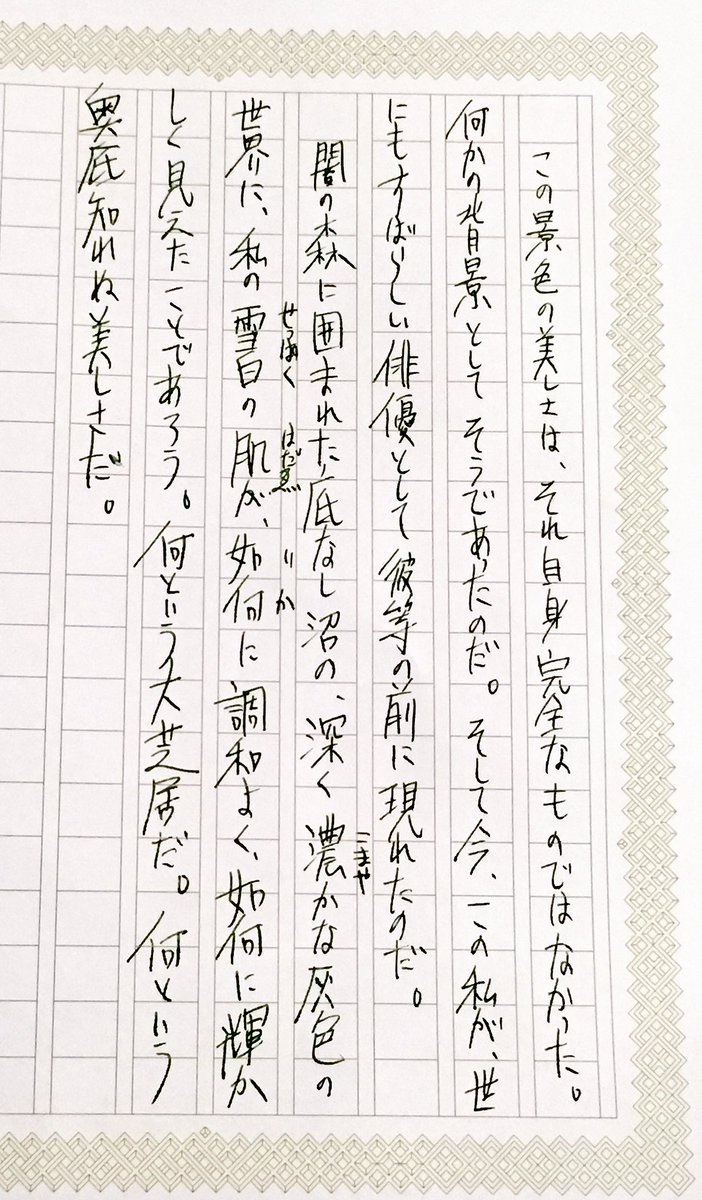 この景色の美しさは、それ自身完全なものではなかった。
何かの背景としてそうであったのだ。そして今、この私が、世
にもすばらしい俳優として彼等の前に現れたのだ。
闇の森に囲まれた底なし沼の、深く濃かな灰色の
こまや
世界に、私の雪白の肌が、如何に調和よく、如何に輝か
せっぱく はだゑ いか
しく見えたことであろう。何という大芝居だ。何という
奥底知れぬ美しさだ。